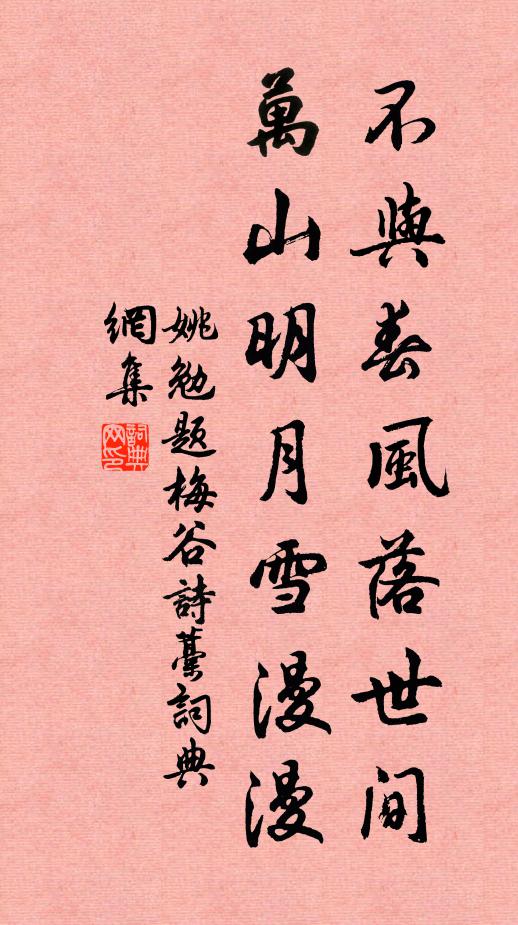 不與春風落世間
萬山明月雪漫漫
姚勉題梅谷詩藁詞典
網集
詞典網印